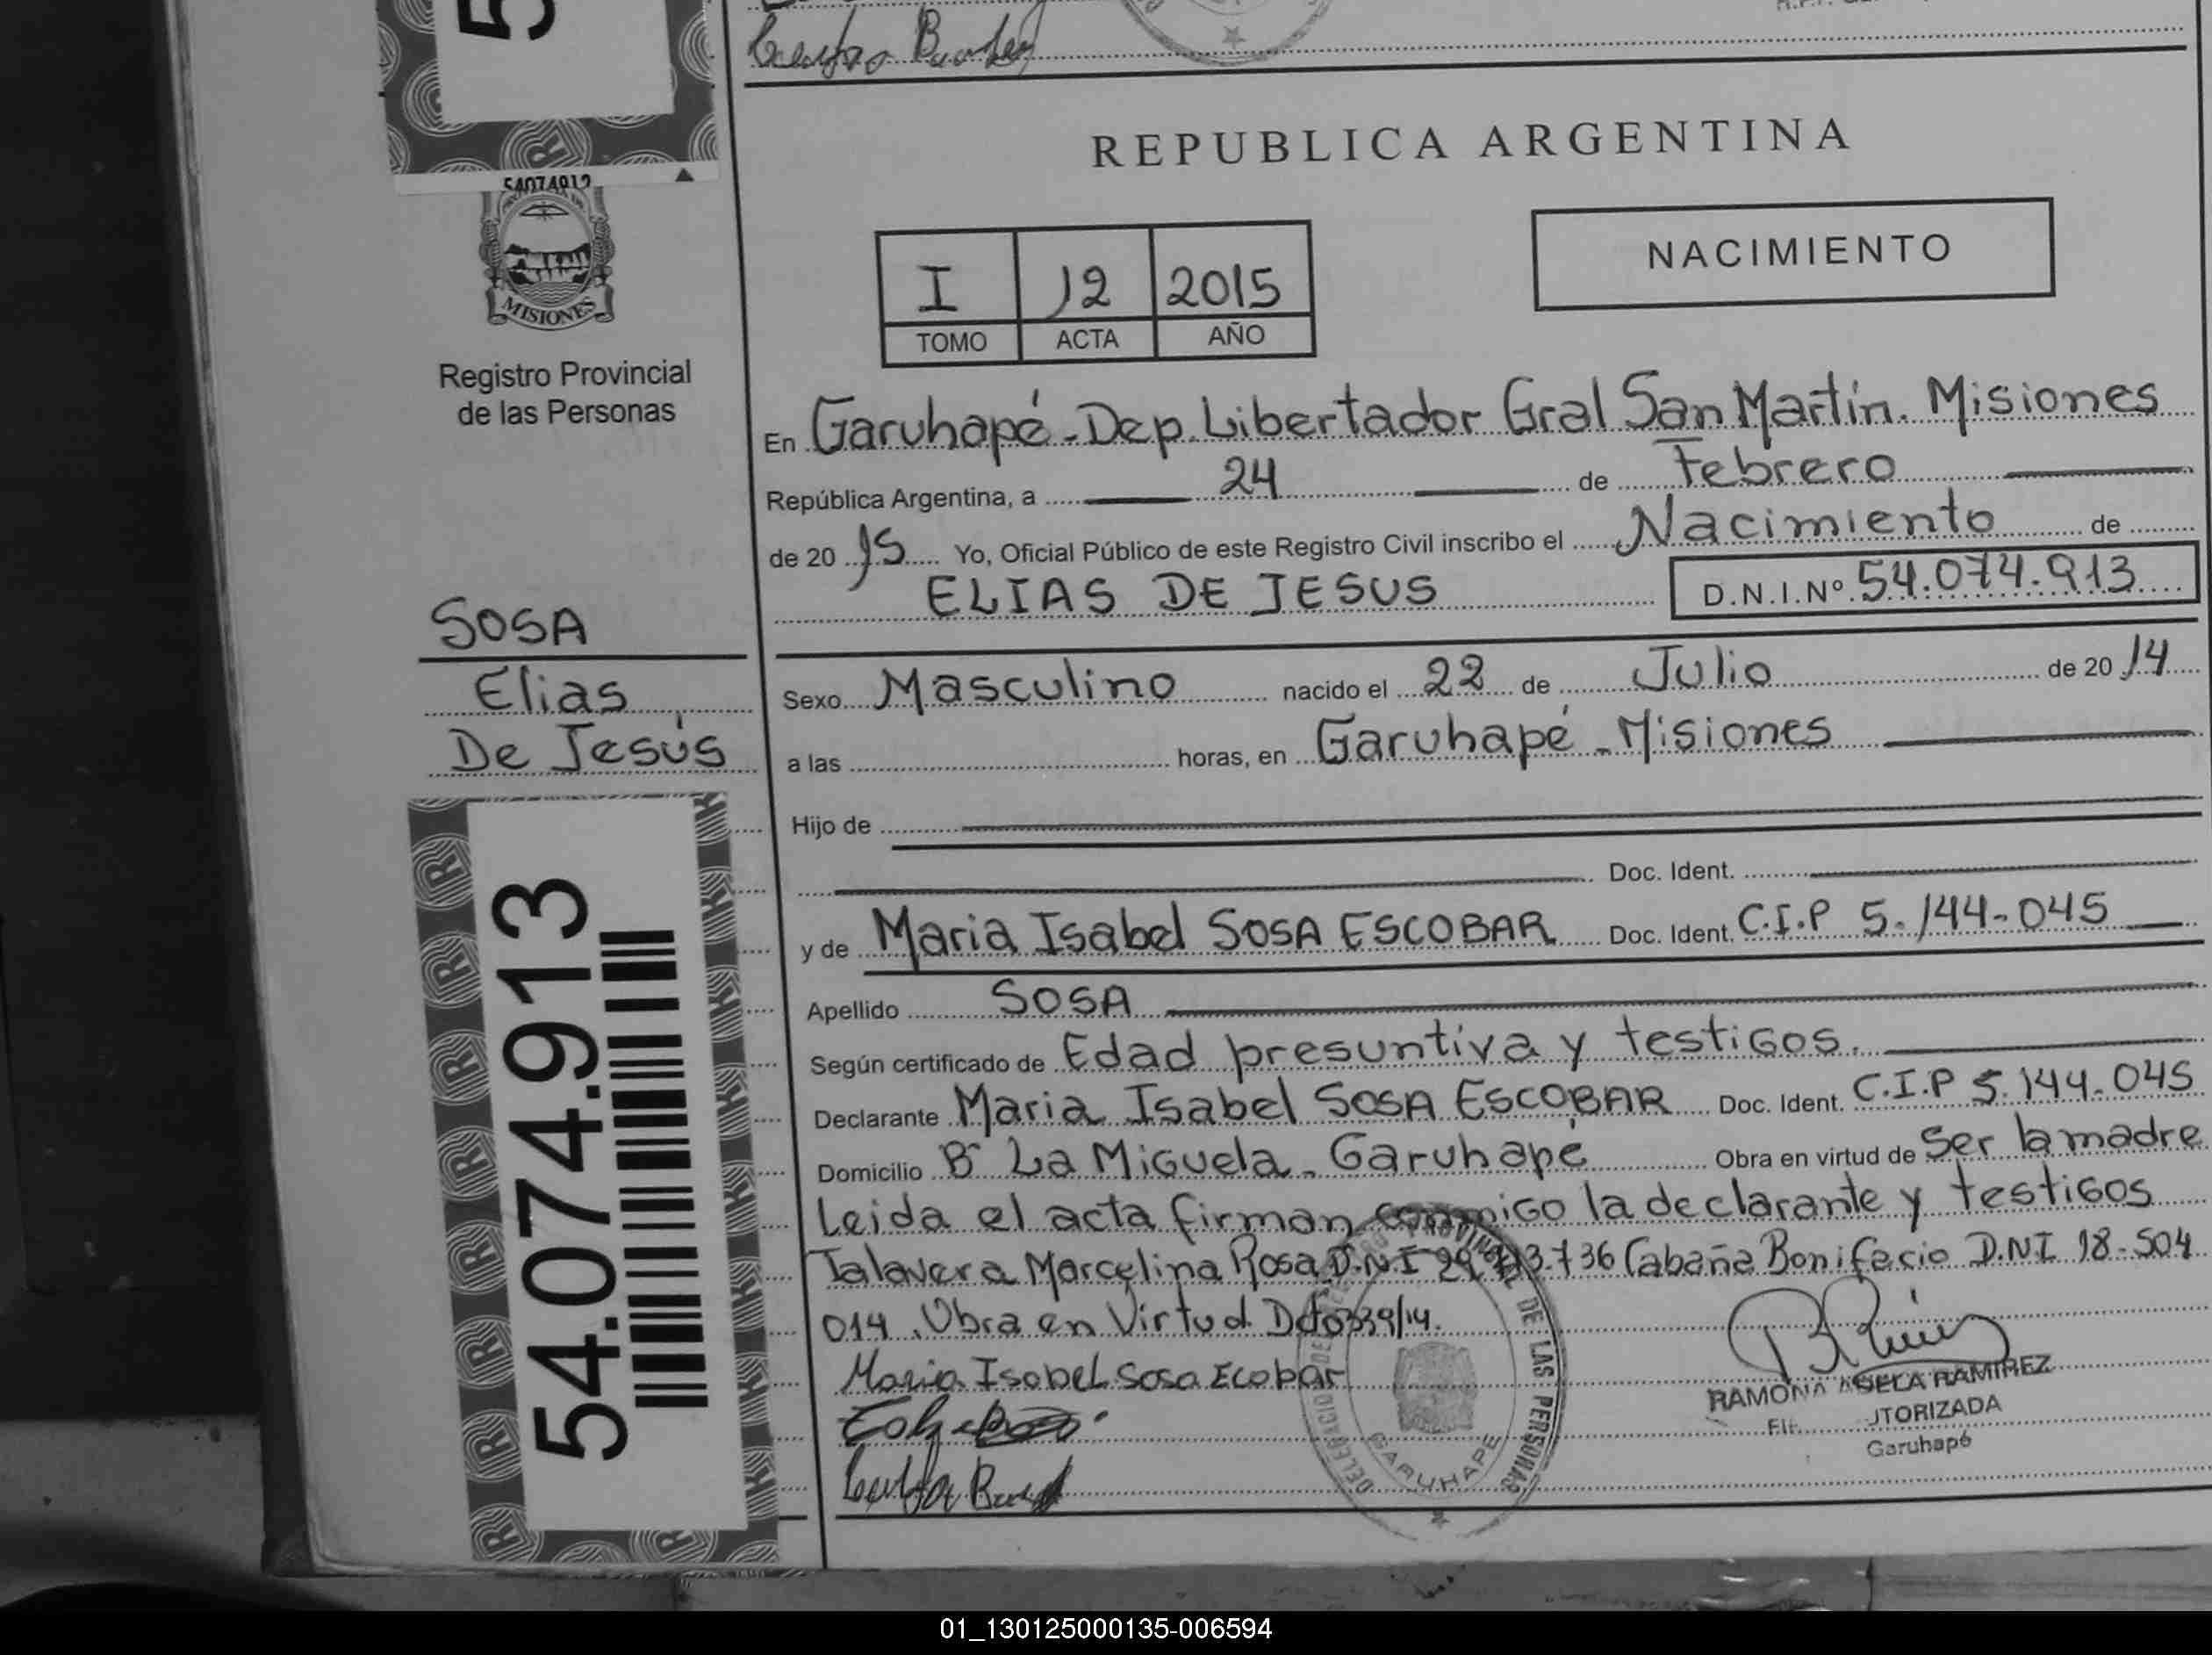 54074912
MISIONES
Registro Provincial
de las Personas
SOSA
Elias
De Jesús
54.074.913
REPUBLICA ARGENTINA
I 12 2015
TOMO ACTA AÑO
NACIMIENTO
En Garuhapé - Dep. Libertador Gral San Martín. Misiones
República Argentina, a 24 de Febrero
de 20 15 Yo, Oficial Público de este Registro Civil inscribo el Nacimiento de
ELIAS DE JESUS D.N.I.Nº 54.074.913
Sexo Masculino nacido el 22 de Julio de 20 14
a las horas, en Garuhapé - Misiones
Hijo de
Doc. Ident.
y de Maria Isabel SOSA ESCOBAR Doc. Ident. C.I.P 5.144-045
Apellido SOSA
Según certificado de Edad presuntiva y testigos.
Declarante Maria Isabel SOSA ESCOBAR Doc. Ident. C.I.P 5.144-045
Domicilio Bº La Miguela - Garuhapé Obra en virtud de Ser la madre
Leida el acta firman conmigo la declarante y testigos
Talavera Marcelina Rosa D.N.I Cabaña Bonifacio D.N.I 18-504
014. Obra en Virtud Dcto 339/14.
Maria Isabel Sosa Ecobar
DE LAS PERSONAS
GARUHAPE
RAMONA RAMIREZ
Garuhapé
01_130125000135-006594